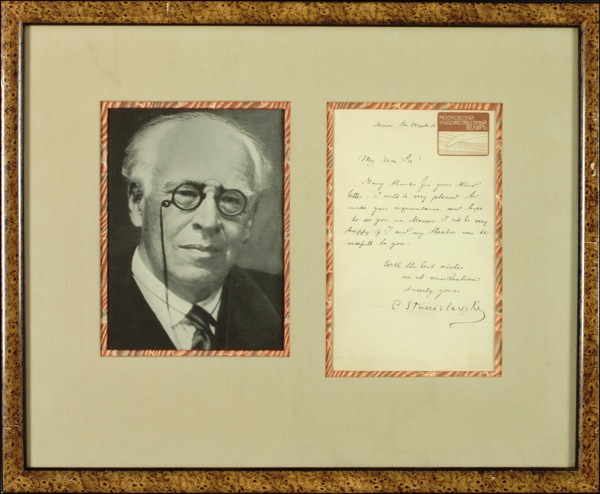 Moscow, the 24
МОСКОВСКІЙ
ХУДОЖЕСТВЕННЫЙ
ТЕАТРЪ
My dear Sir!
Many thanks for your kind
letter. I will be very pleased to
make your acquaintance and hope
to see you in Moscow. I will be very
happy if I and my theatre can be
usefull to you.
With the best wishes
consideration
sincerely yours
C Stanislawsky